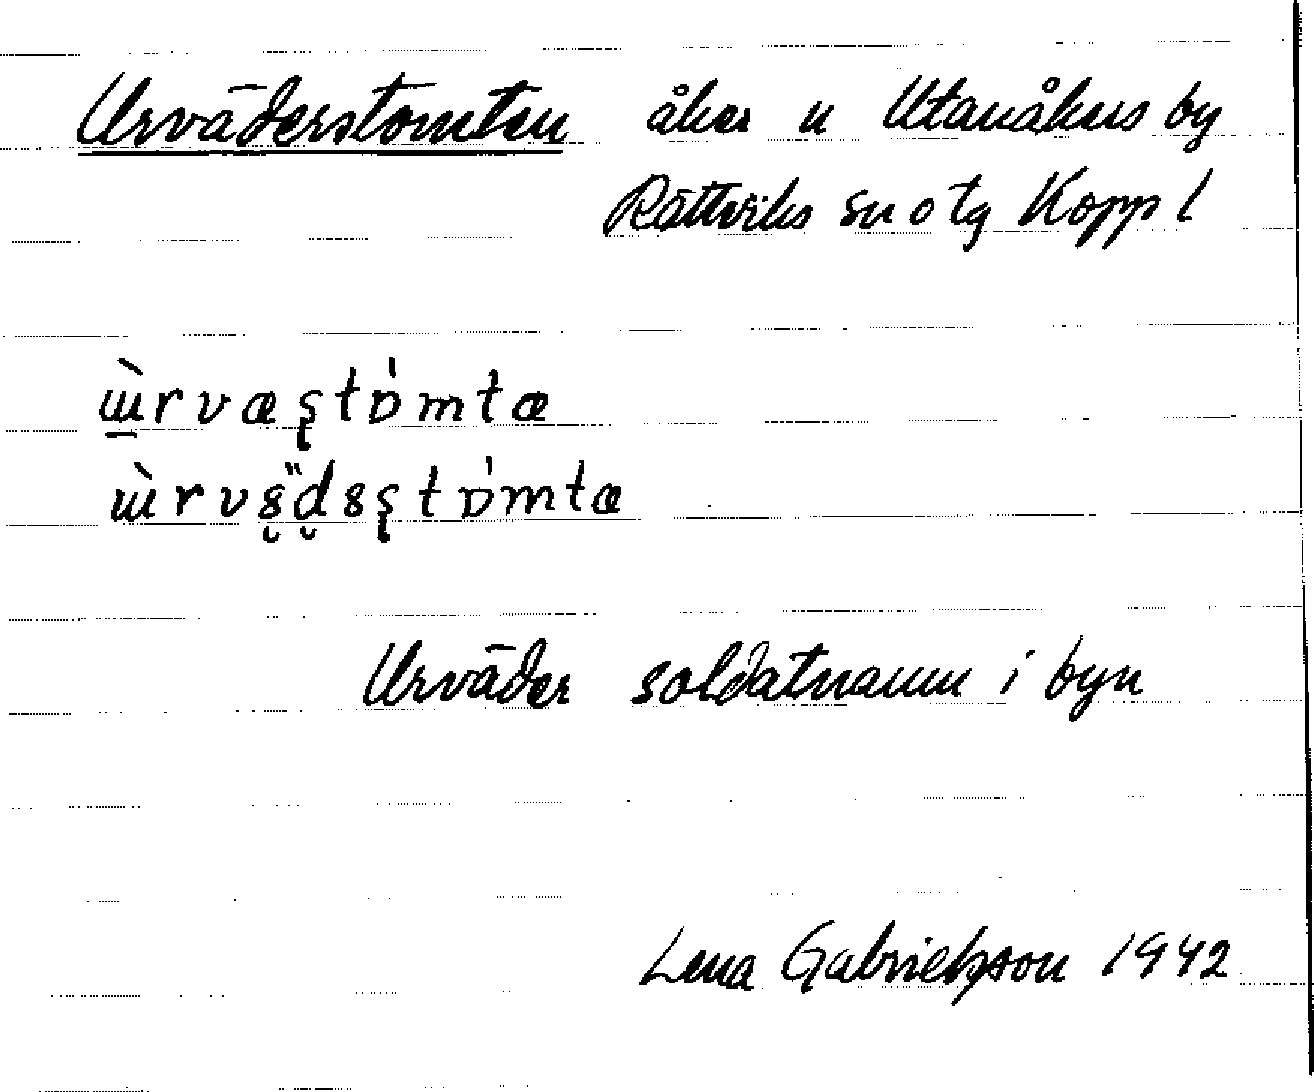 Urväderstomten åker n Utanåkers by
Rättviks sn o tg Kopp l
ɯ̱̀rvæʂtɒ́mtæ
Urväder soldatnamn i byn
Lena Gabrielsson 1942